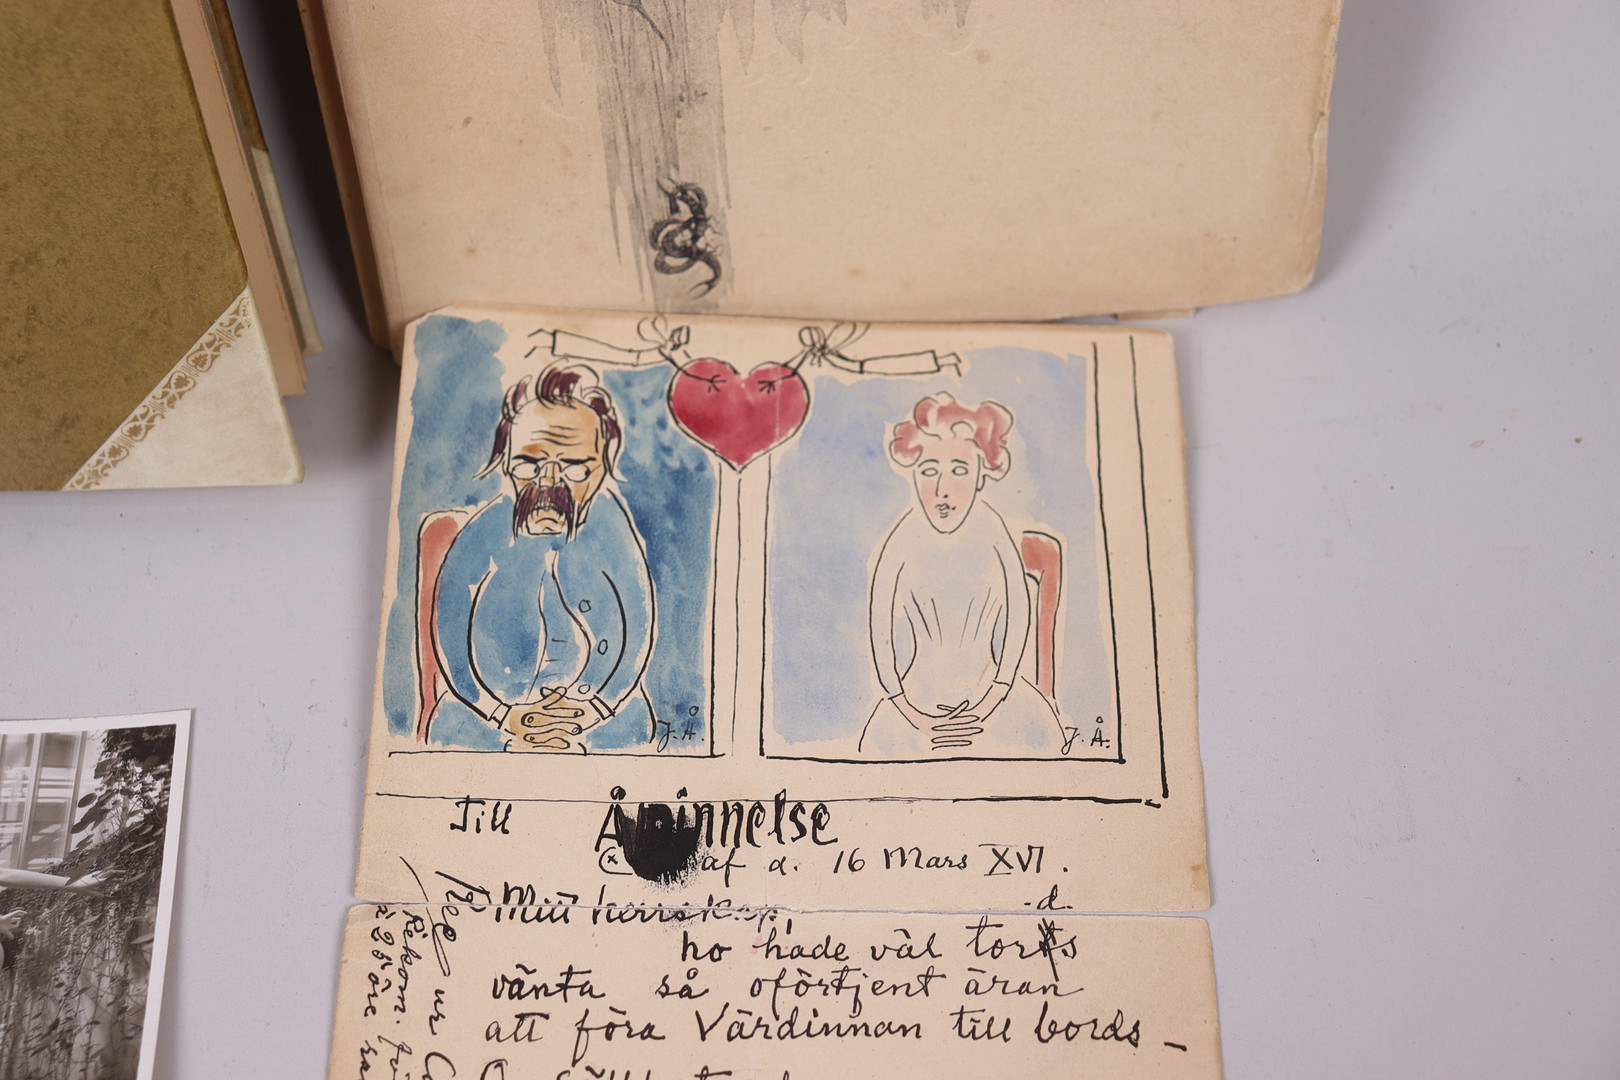 J. Å.
J. Å.
Till Åminnelse
af d. 16 Mars XVI.
Mitt herrskap,
ho hade väl tords
vänta så oförtjent äran
att föra Värdinnan till bords –
Rekom. för
25 öre